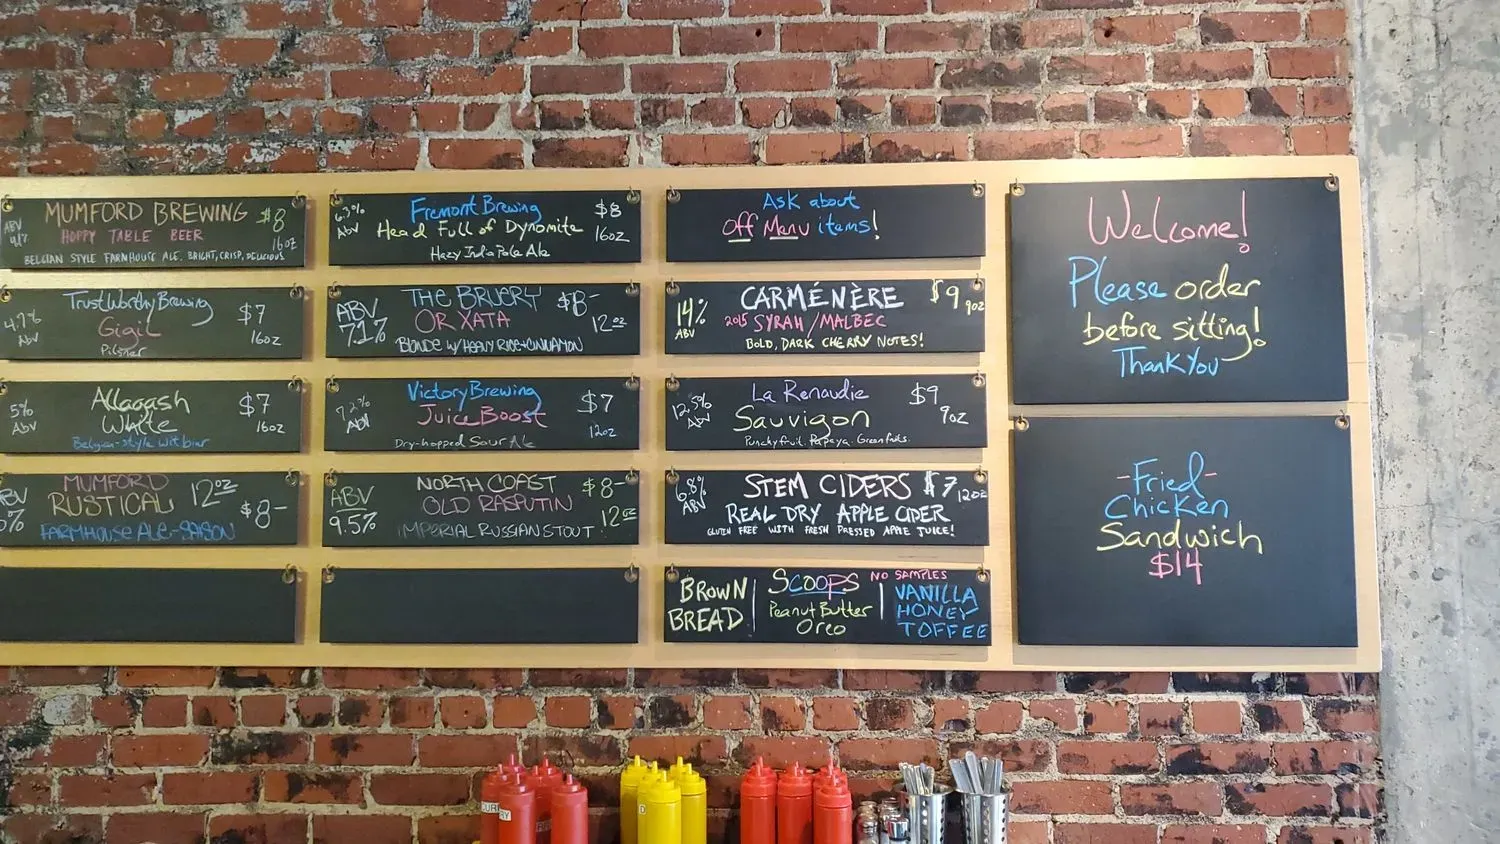 MUMFORD BREWING $8
HOPPY TABLE BEER
ABV
16oz
BELGIAN STYLE FARMHOUSE ALE. BRIGHT, CRISP, DELICIOUS
TrustWorthy Brewing
Gigil
Pilsner
4.7%
ABV
$7
16oz
Allagash
White
Belgian-style witbier
5%
ABV
$7
16oz
MUMFORD
RUSTICAL
12oz
$8-
FARMHOUSE ALE-SAISON
Fremont Brewing
Head Full of Dynomite
Hazy India Pale Ale
6.3%
ABV
$8
16oz
THE BRUERY
OR XATA
ABV
7.1%
$8-
12oz
BLONDE W/ HEAVY RICE + CINNAMON
Victory Brewing
Juice Boost
Dry-hopped Sour Ale
7.2%
ABV
$7
12oz
NORTH COAST
OLD RASPUTIN
IMPERIAL RUSSIAN STOUT
ABV
9.5%
$8-
12oz
Ask about
Off Menu items!
CARMÉNÈRE
2015 SYRAH/MALBEC
BOLD, DARK CHERRY NOTES!
14%
ABV
$9
9oz
La Renaudie
Sauvignon
Punchy fruit. Papaya. Green fruits.
12.5%
ABV
$9
9oz
STEM CIDERS
REAL DRY APPLE CIDER
GLUTEN FREE WITH FRESH PRESSED APPLE JUICE!
6.8%
ABV
$7
12oz
BROWN
BREAD
SCOOPS
Peanut Butter
Oreo
NO SAMPLES
VANILLA
HONEY
TOFFEE
Welcome!
Please order
before sitting!
Thank You
-Fried-
Chicken
Sandwich
$14